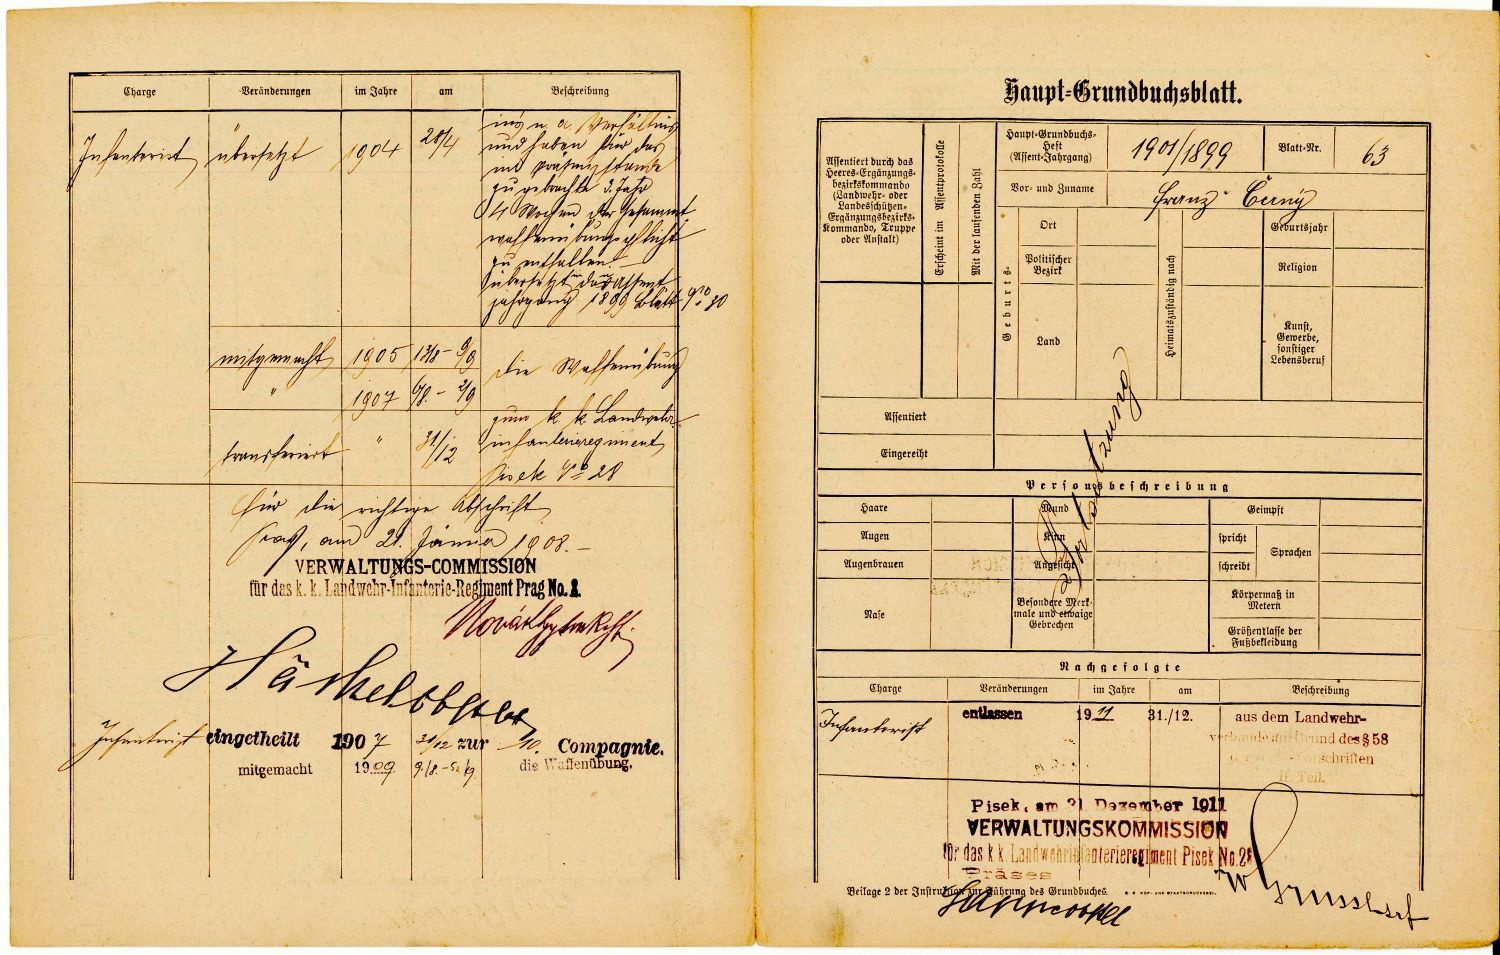 Charge Veränderungen im Jahre am Beschreibung
Infanterist übersetzt 1904 28/4
und haben für das
zu gebrachte 3. Jahr
4 Wochen der Gesammt
waffenübungspflicht
zu entfallen.
übersetzt in den Assent
jahrgang 1899 Blatt No 30
mitgemacht 1905 13/8 – 9/9 die Waffenübung
" 1907 6/8. – 2/9
transferiert " 31/12 zum k k Landwehr
infanterieregiment
Pisek No 28
für die richtige Abschrift
Prag, am 21. Jänner 1908. –
VERWALTUNGS-COMMISSION
für das k. k. Landwehr-Infanterie-Regiment Prag No. 8.
Infanterist eingetheilt 1907 31/12 zur 10. Compagnie.
mitgemacht 1909 9./8. – 5./9. die Waffenübung.
Haupt-Grundbuchsblatt.
Assentiert durch das
Heeres-Ergänzungs-
bezirkskommando
(Landwehr- oder
Landesschützen-
Ergänzungsbezirks-
Kommando, Truppe
oder Anstalt)
Erscheint im Assentprotokolle
Mit der laufenden Zahl
Haupt-Grundbuchs-
Heft
(Assent-Jahrgang)
1901/1899
Blatt-Nr. 63
Vor- und Zuname Franz Černý
Geburts-
Ort
Politischer
Bezirk
Land
Heimatszuständig nach
Geburtsjahr
Religion
Kunst,
Gewerbe,
sonstiger
Lebensberuf
Assentiert
Eingereiht
Fortsetzung
Personsbeschreibung
Haare Mund Geimpft
Augen Kinn spricht Sprachen
Augenbrauen Angesicht schreibt
Nase
Besondere Merk-
male und etwaige
Gebrechen
Körpermaß in
Metern
Größenklasse der
Fußbekleidung
Nachgefolgte
Charge Veränderungen im Jahre am Beschreibung
Infanterist entlassen 1911 31./12. aus dem Landwehr-
verbande auf Grund des § 58
II. Teil.
Pisek, am 31. Dezember 1911
VERWALTUNGSKOMMISSION
für das k k. Landwehrinfanterieregiment Pisek No. 28
Präses
Beilage 2 der Instruktion zur Führung des Grundbuches. K. K. HOF- UND STAATSDRUCKEREI.